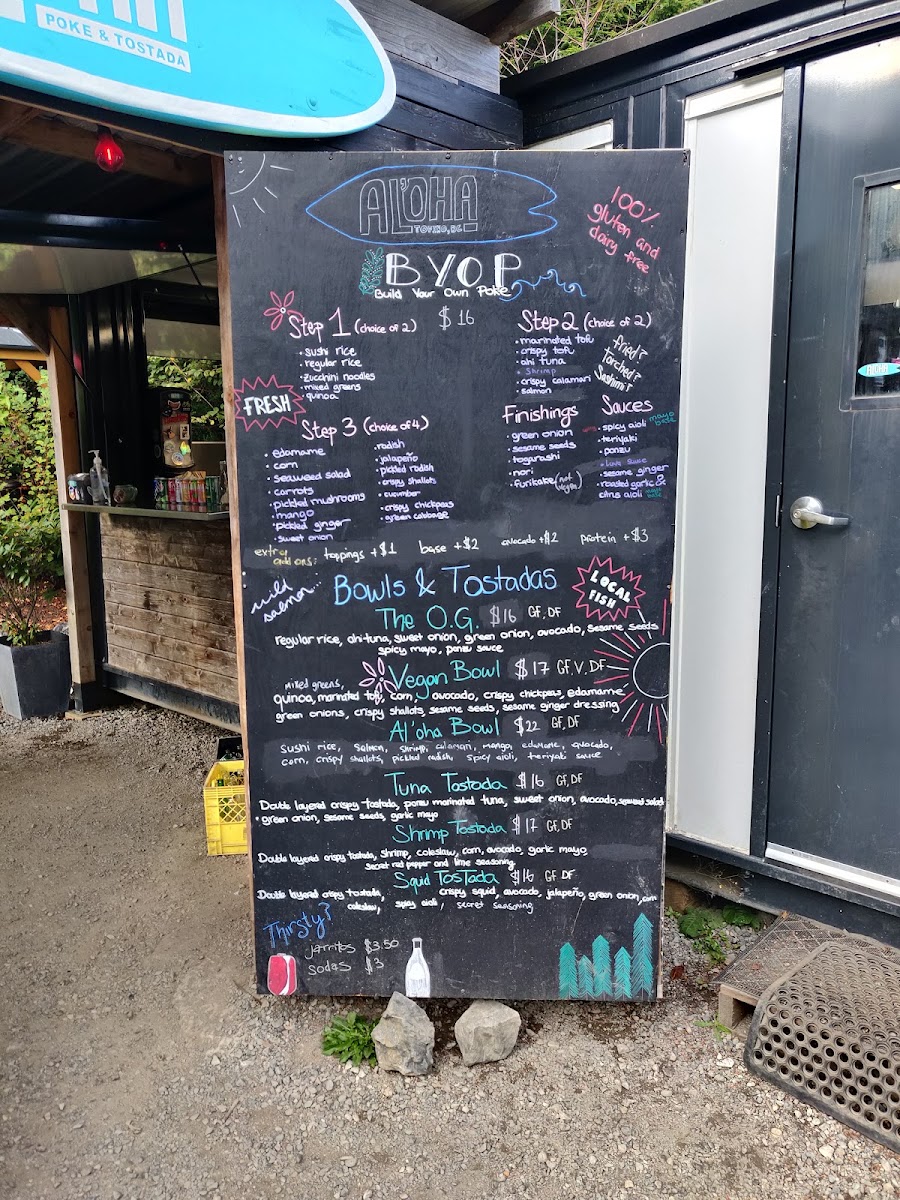 POKE & TOSTADA
AL'OHA
TOFINO, BC
100%
gluten and
dairy free
BYOP
Build Your Own Poke
$16
Step 1 (choice of 2)
• sushi rice
• regular rice
• zucchini noodles
• mixed greens
• quinoa
FRESH
Step 2 (choice of 2)
• marinated tofu
• crispy tofu
• ahi tuna
• Shrimp
• crispy calamari
• salmon
fried?
Torched?
Sashimi?
Step 3 (choice of 4)
• edamame
• corn
• seaweed salad
• carrots
• pickled mushrooms
• mango
• pickled ginger
• sweet onion
• radish
• jalapeño
• pickled radish
• crispy shallots
• cucumber
• crispy chickpeas
• green cabbage
Finishings
• green onion
• sesame seeds
• togarashi
• nori
• furikake (not vegan)
Sauces
• spicy aioli mayo base
• teriyaki
• ponzu
• sesame ginger
• roasted garlic &
citrus aioli mayo base
extra
add ons: toppings +$1 base +$2 avocado +$2 protein +$3
wild
salmon...
Bowls & Tostadas
LOCAL
FISH
The O.G. $16 GF, DF
regular rice, ahi-tuna, sweet onion, green onion, avocado, sesame seeds
spicy mayo, ponzu sauce
Vegan Bowl $17 GF, V, DF
mixed greens,
quinoa, marinated tofu, corn, avocado, crispy chickpeas, edamame
green onions, crispy shallots, sesame seeds, sesame ginger dressing
Al'oha Bowl $22 GF, DF
sushi rice, salmon, shrimp, calamari, mango, edamame, avocado,
corn, crispy shallots, pickled radish, spicy aioli, teriyaki sauce
Tuna Tostada $16 GF, DF
Double layered crispy tostada, ponzu marinated tuna, sweet onion, avocado, seaweed salad
• green onion, sesame seeds, garlic mayo
Shrimp Tostada $17 GF, DF
Double layered crispy tostada, shrimp, coleslaw, corn, avocado, garlic mayo,
secret red pepper and lime seasoning
Squid Tostada $16 GF DF
Double layered crispy tostada, crispy squid, avocado, jalapeño, green onion, corn
coleslaw, spicy aioli, secret seasoning
Thirsty?
jarritos $3.50
sodas $3